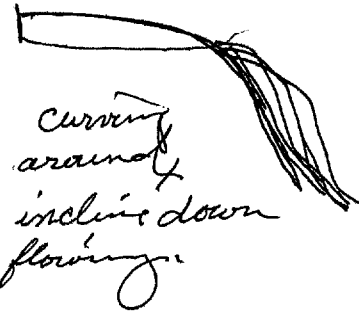 curving
around
incline down
flowing.